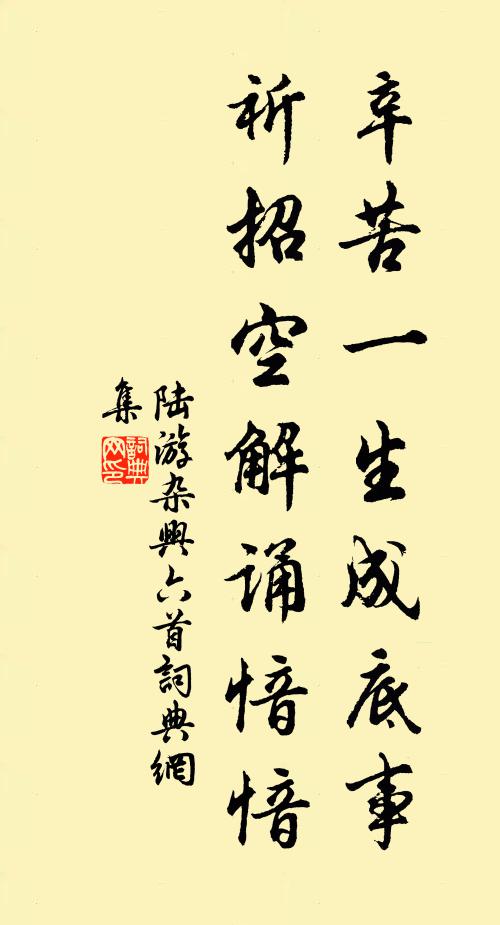 辛苦一生成底事
祈招空解诵愔愔
陆游杂興六首詞典網
集
詞典
网印